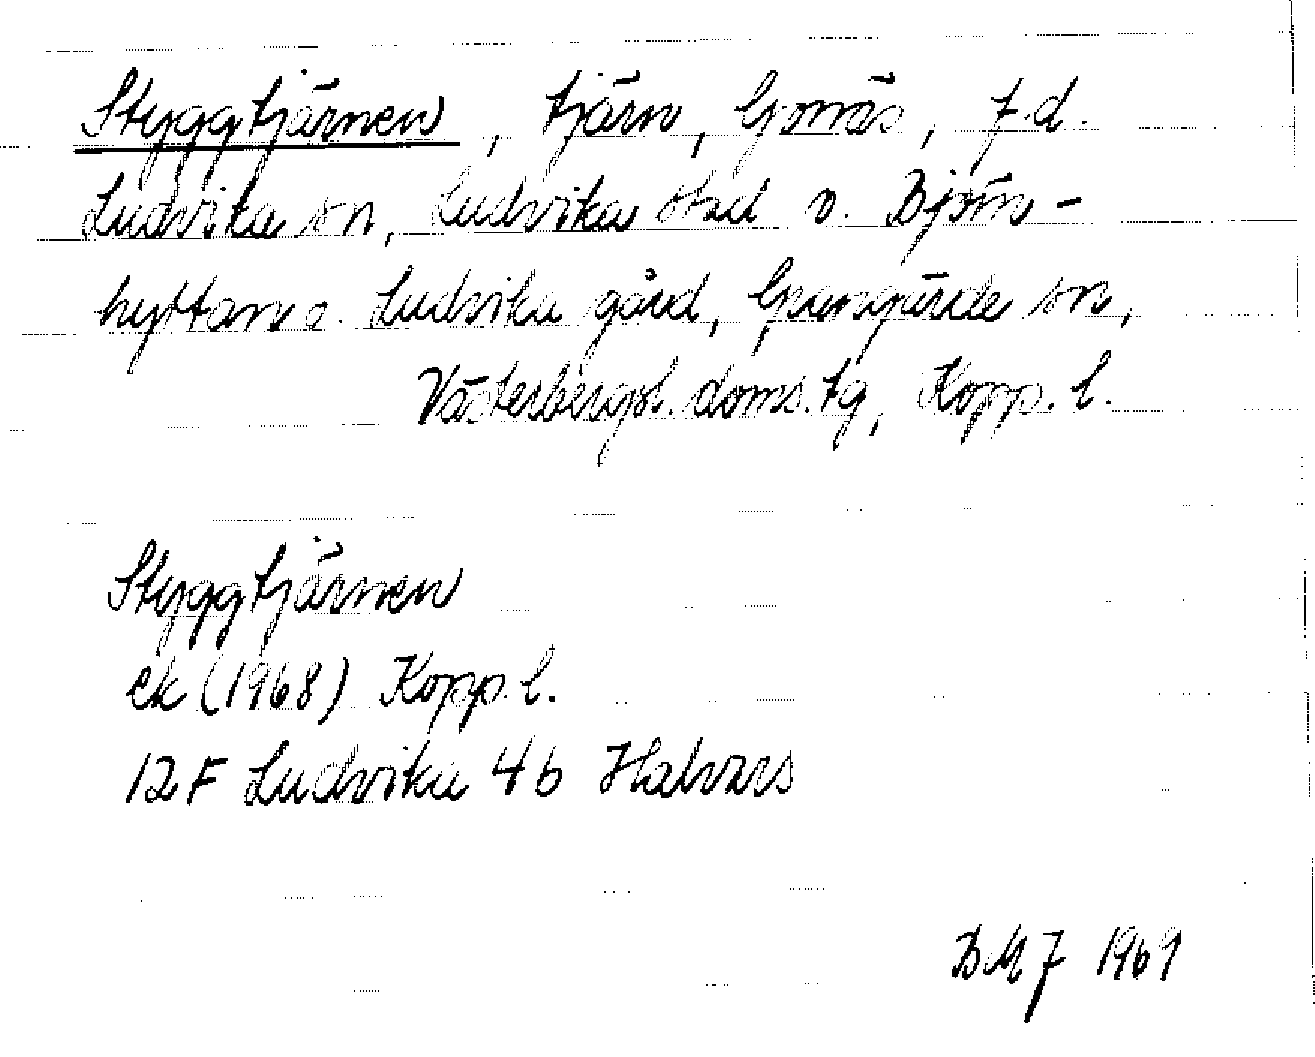 Styggtjärnen, tjärn, Gonäs, f.d.
Ludvika sn, Ludvika stad o. Björn-
hyttan o. Ludvika gård, Grangärde sn,
Västerbergsl. doms.tg, Kopp. l.
Styggtjärnen
ek (1968) Kopp. l.
12F Ludvika 4b Halvars
BMJ 1969